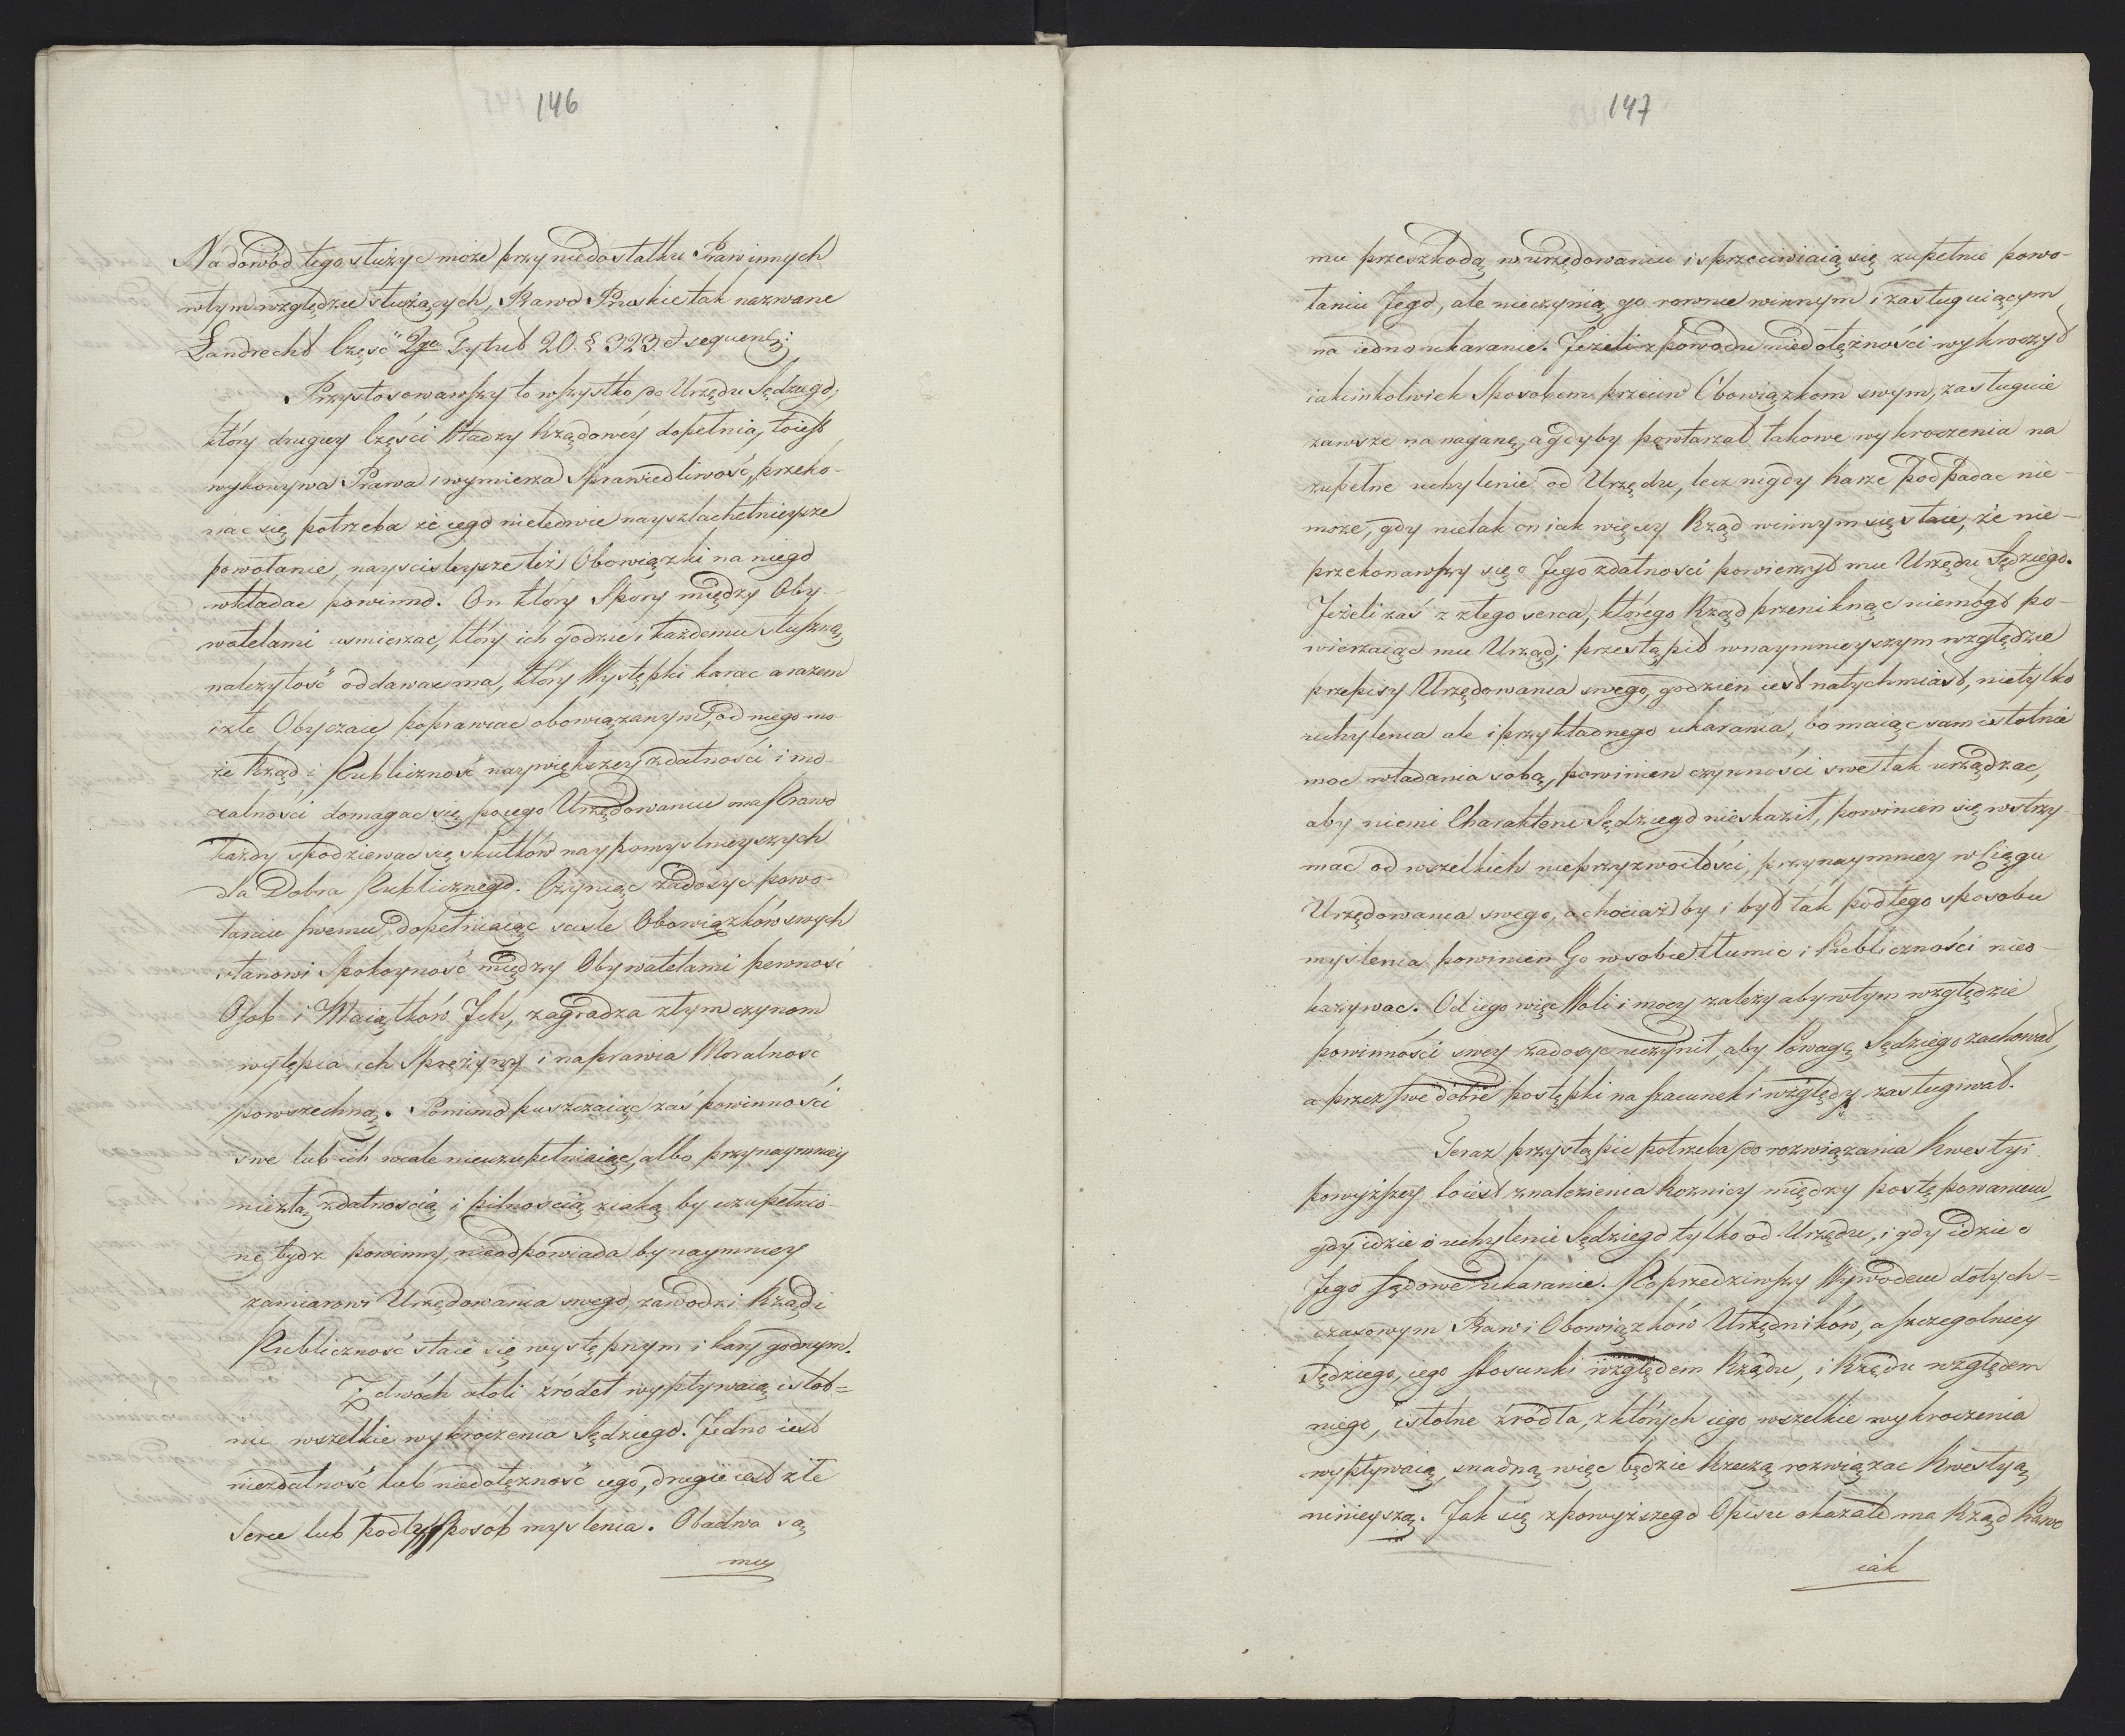 146
Na dowód tego służyc może przy niedostatku Praw innych
wtym względzie służących, Prawo Pruskie tak nazwane
Landrecht Część 2ga Tytuł 20. § 323. et sequent:
Przystosowawszy to wszystko do Urzędu Sędziego,
który drugiey Części Władzy Rządowéy dopełnia, toiest
wykonywa Prawa i wymierza Sprawiedliwość, przeko-
nac się potrzeba że iego nieledwie nayszlachetnieysze
powołanie, nayscisleysze też Obowiązki na niego
wkładac powinno. On który Spory między Oby-
watelami usmierzac, który ich godzic i każdemu słuszną
należytość oddawac ma, który Występki karac a razem
i złe Obyczaie poprawiac obowiązanym, od niego mo-
że Rząd i Publiczność naywiększey zdatności i mo-
ralności domagac się, po iego Urzędowaniu ma Prawo
każdy spodziewac się skutków naypomyslnieyszych
dla Dobra Publicznego. Czyniąc zadosyc powo-
łaniu swemu, dopełniaiąc scisle Obowiązków swych
stanowi Spokoyność między Obywatelami pewność
Osob i Maiątków Ich, zagradza złym czynom
wytępia ich Sprężyny i naprawia Moralność
powszechną. Pomimo puszczaiąc zaś powinności
swe lub ich wcale nieuzupełniaiąc, albo przynaymniey
nie z tą zdatnoscią i pilnoscią z iaką by uzupełnio-
ne bydz powinny, nieodpowiada bynaymniey
zamiarowi Urzędowania swego, zawodzi Rząd i
Publiczność staie się występnym i kary godnym.
Z dwóch atoli źródeł wypływaią istot=
nie wszelkie wykroczenia Sędziego. Jedno iest
niezdatność lub niedołężność iego, drugie iest złe
Serce lub podły sposób myslenia. Obadwa są
mu
147
mu przeszkodą w urzędowaniu i sprzeciwiaią się zupełnie powo-
łaniu Jego, ale nieczynią go rownie winnym i zasługuiącym
na iedno ukaranie. Jeżeli z powodu niedołężności wykroczył
iakimkolwiek Sposobem przeciw Obowiązkom swym, zasługuie
zawsze na naganę, a gdyby powtarzał takowe wykroczenia na
zupełne uchylenie od Urzędu, lecz nigdy karze podpadac nie-
może, gdy nietak on iak więcey Rząd winnym się staie, że nie-
przekonawszy się o Jego zdatności powierzył mu Urzędu Sędziego.
Jeżeli zaś z złego serca, którego Rząd przeniknąc niemógł po-
wierzaiąc mu Urząd, przestąpił w naymnieyszym względzie
przepisy Urzędowania swego, godzien iest natychmiast, nietylko
uchylenia ale i przykładnego ukarania, bo maiąc sam istotnie
moc władania sobą, powinien czynności swe tak urządzac,
aby niemi Charakteru Sędziego nieskaził, powinien się wstrzy-
mac od wszelkich nieprzyzwoitości, przynaymniey w Ciągu
Urzędowania swego, a chociażby i był tak podłego sposobu
myslenia powinien Go w sobie tłumic i Publiczności nieo-
kazywac. Od iego więc Woli i mocy zależy aby wtym względzie
powinności swey zadosyc uczynił, aby Powagę Sędziego zachował,
a przez swe dobre postępki na szacunek i względy zasługiwał.
Teraz przystąpic potrzeba do rozwiązania Kwestyi
powyższey toiest znalezienia Roznicy między postępowaniem,
gdy idzie o uchylenie Sędziego tylko od Urzędu, i gdy idzie o
Jego sądowe ukaranie. Poprzedziwszy Wywodem dotych=
czasowym Praw i Obowiązków Urzędników, a szczegolniey
Sędziego, iego stosunki względem Rządu, i Rządu względem
niego, istotne źródła, z których iego wszelkie wykroczenia
wypływaią, snadną więc będzie Rzeczą rozwiązac Kwestyą
ninieyszą. Jak się z powyższego Opisu okazało ma Rząd Prawo
iak